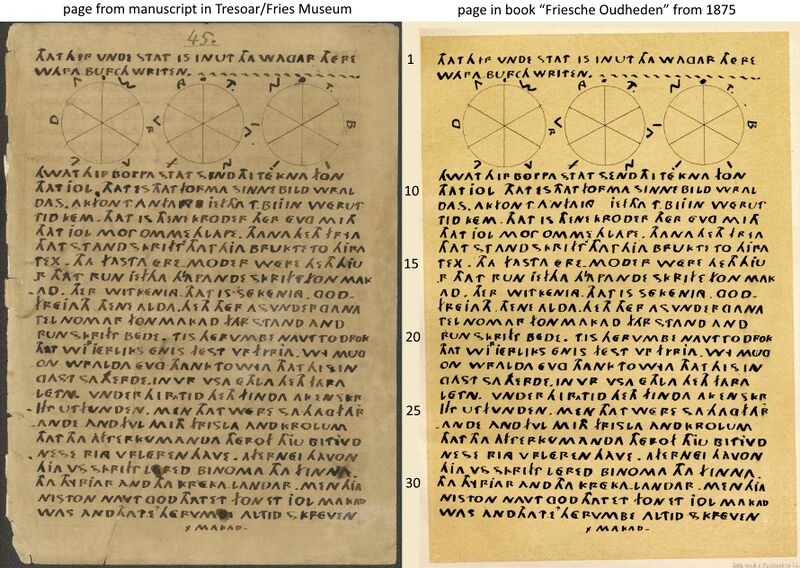 page from manuscript in Tresoar/Fries Museum
45.
THAT HIR UNDE STAT IS IN UT THA WAGAR THERE
WARA BURCH WRITEN.
HWAT HIR BOPPA STAT SEND THI TEKNA FON
THAT JOL. THAT IS THAT FORMA SINNEBILD WRAL
DAS. AK FON T ANFANG IEFTHA T BIJIN WERUT
TID KEM. THAT IS THENE KRODER THER EVG MITH
THAT JOL MOT OMMEHLAPE. THANA HETH FRIA
THAT STANDSKRIFT THAT HIA BRUKTE TO HIRA
TEX. THA FASTA ERE.MODER WERE HETH HIU
R THAT RUN IEFTHA HLAPANDE SKRIFT FON MAK
AD. THER WITKENIG. THAT IS SEKENIG. GOD-
FREIATH. THENE ALDA. HETH THER ASUNDERGANA
TELNOMAR FON MAKAD FAR STAND AND
RUNSKRIFT BEDE. T IS HERUMBE NAVT TO DROK
THAT WI R IERLIKS ENIS FEST VR FIRIA. WI MUG
ON WRALDA EVG THANK TO WIA THAT HI S IN
GAST SA HERDE. IN VR VSA ETHLA HETH FARA
LETN. UNDER HIRA TID HETH FINDA AK EN SKR
IFT UTFUNDEN. MEN THAT WERE SA HAGFAR
ANDE AND FUL MITH FRISLA AND KROLUM
THAT THA AFTERKUMANDA THEROF THIU BITIUD
NESE RING VRLEREN HAVE. AFTERNEI HAVON
HIA VS SKRIFT LERED BINOMA THA FINNA.
THA THIRIAR AND THA KREKALANDAR. MEN HIA
NISTON NAVT GOD THATET FON ET JOL MAKAD
WAS AND THATET HERUMBE ALTID SKREVEN
× MAKAD.
page in book “Friesche Oudheden” from 1875
THAT HIR UNDE STAT IS IN UT THA WAGAR THERE
WARA BURCH WRITEN.
HWAT HIR BOPPA STAT SEND THI TEKNA FON
THAT JOL. THAT IS THAT FORMA SINNEBILD WRAL
DAS. AK FON T ANFANG IEFTHA T BIJIN WERUT
TID KEM. THAT IS THENE KRODER THER EVG MITH
THAT JOL MOT OMMEHLAPE. THANA HETH FRIA
THAT STANDSKRIFT THAT HIA BRUKTE TO HIRA
TEX. THA FASTA ERE.MODER WERE HETH HIU
R THAT RUN IEFTHA HLAPANDE SKRIFT FON MAK
AD. THER WITKENIG. THAT IS SEKENIG. GOD-
FREIATH. THENE ALDA. HETH THER ASUNDERGANA
TELNOMAR FON MAKAD FAR STAND AND
RUNSKRIFT BEDE. T IS HERUMBE NAVT TO DROK
THAT WI R IERLIKS ENIS FEST VR FIRIA. WI MUG
ON WRALDA EVG THANK TO WIA THAT HI S IN
GAST SA HERDE. IN VR VSA ETHLA HETH FARA
LETN. UNDER HIRA TID HETH FINDA AK EN SKR
IFT UTFUNDEN. MEN THAT WERE SA HAGFAR
ANDE AND FUL MITH FRISLA AND KROLUM
THAT THA AFTERKUMANDA THEROF THIU BITIUD
NESE RING VRLEREN HAVE. AFTERNEI HAVON
HIA VS SKRIFT LERED BINOMA THA FINNA.
THA THIRIAR AND THA KREKALANDAR. MEN HIA
NISTON NAVT GOD THATET FON ET JOL MAKAD
WAS AND THATET HERUMBE ALTID SKREVEN
× MAKAD.
1
10
15
20
25
30